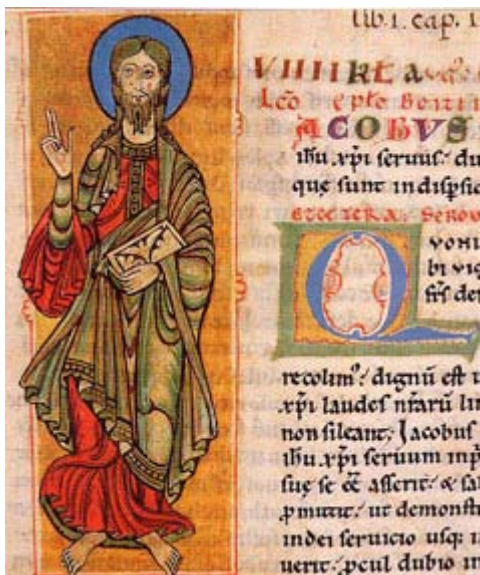 lib. 1. cap. 1
VIIII KL Aug
Lcõ eple
JACOBVS
ihu xpi seruus: du
quę sunt in dispsio
Q VONI
bi vig
frs de
recolim⁹: dignũ est u
xpi laudes nrarũ lin
non sileant; Jacobus
ihu xpi seruum inp
suę se ee asserit: & sal
pmittit: ut demonstr
indei seruicio usq: i
uerit: pcul dubio in